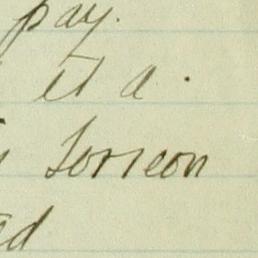 pay.
it a.
Torreon
ed